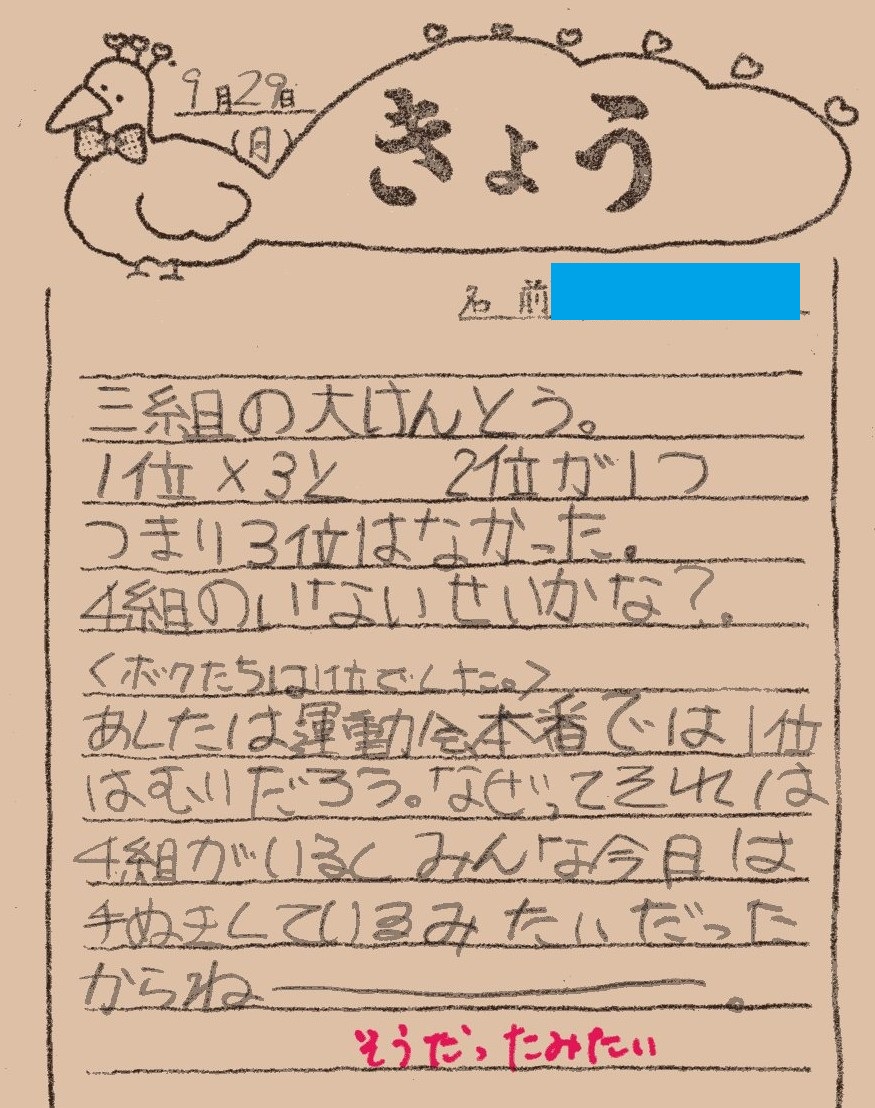 9月29日
(月)
きょう
名前
三組の大けんとう。
1位×3と 2位が1つ
つまり3位はなかった。
4組のいないせいかな?。
<ボクたちは1位でした。>
あしたは運動会本番では1位
はむりだろう。なぜってそれは
4組がいるしみんな今日は
手ぬきしているみたいだった
からねー。
そうだったみたい